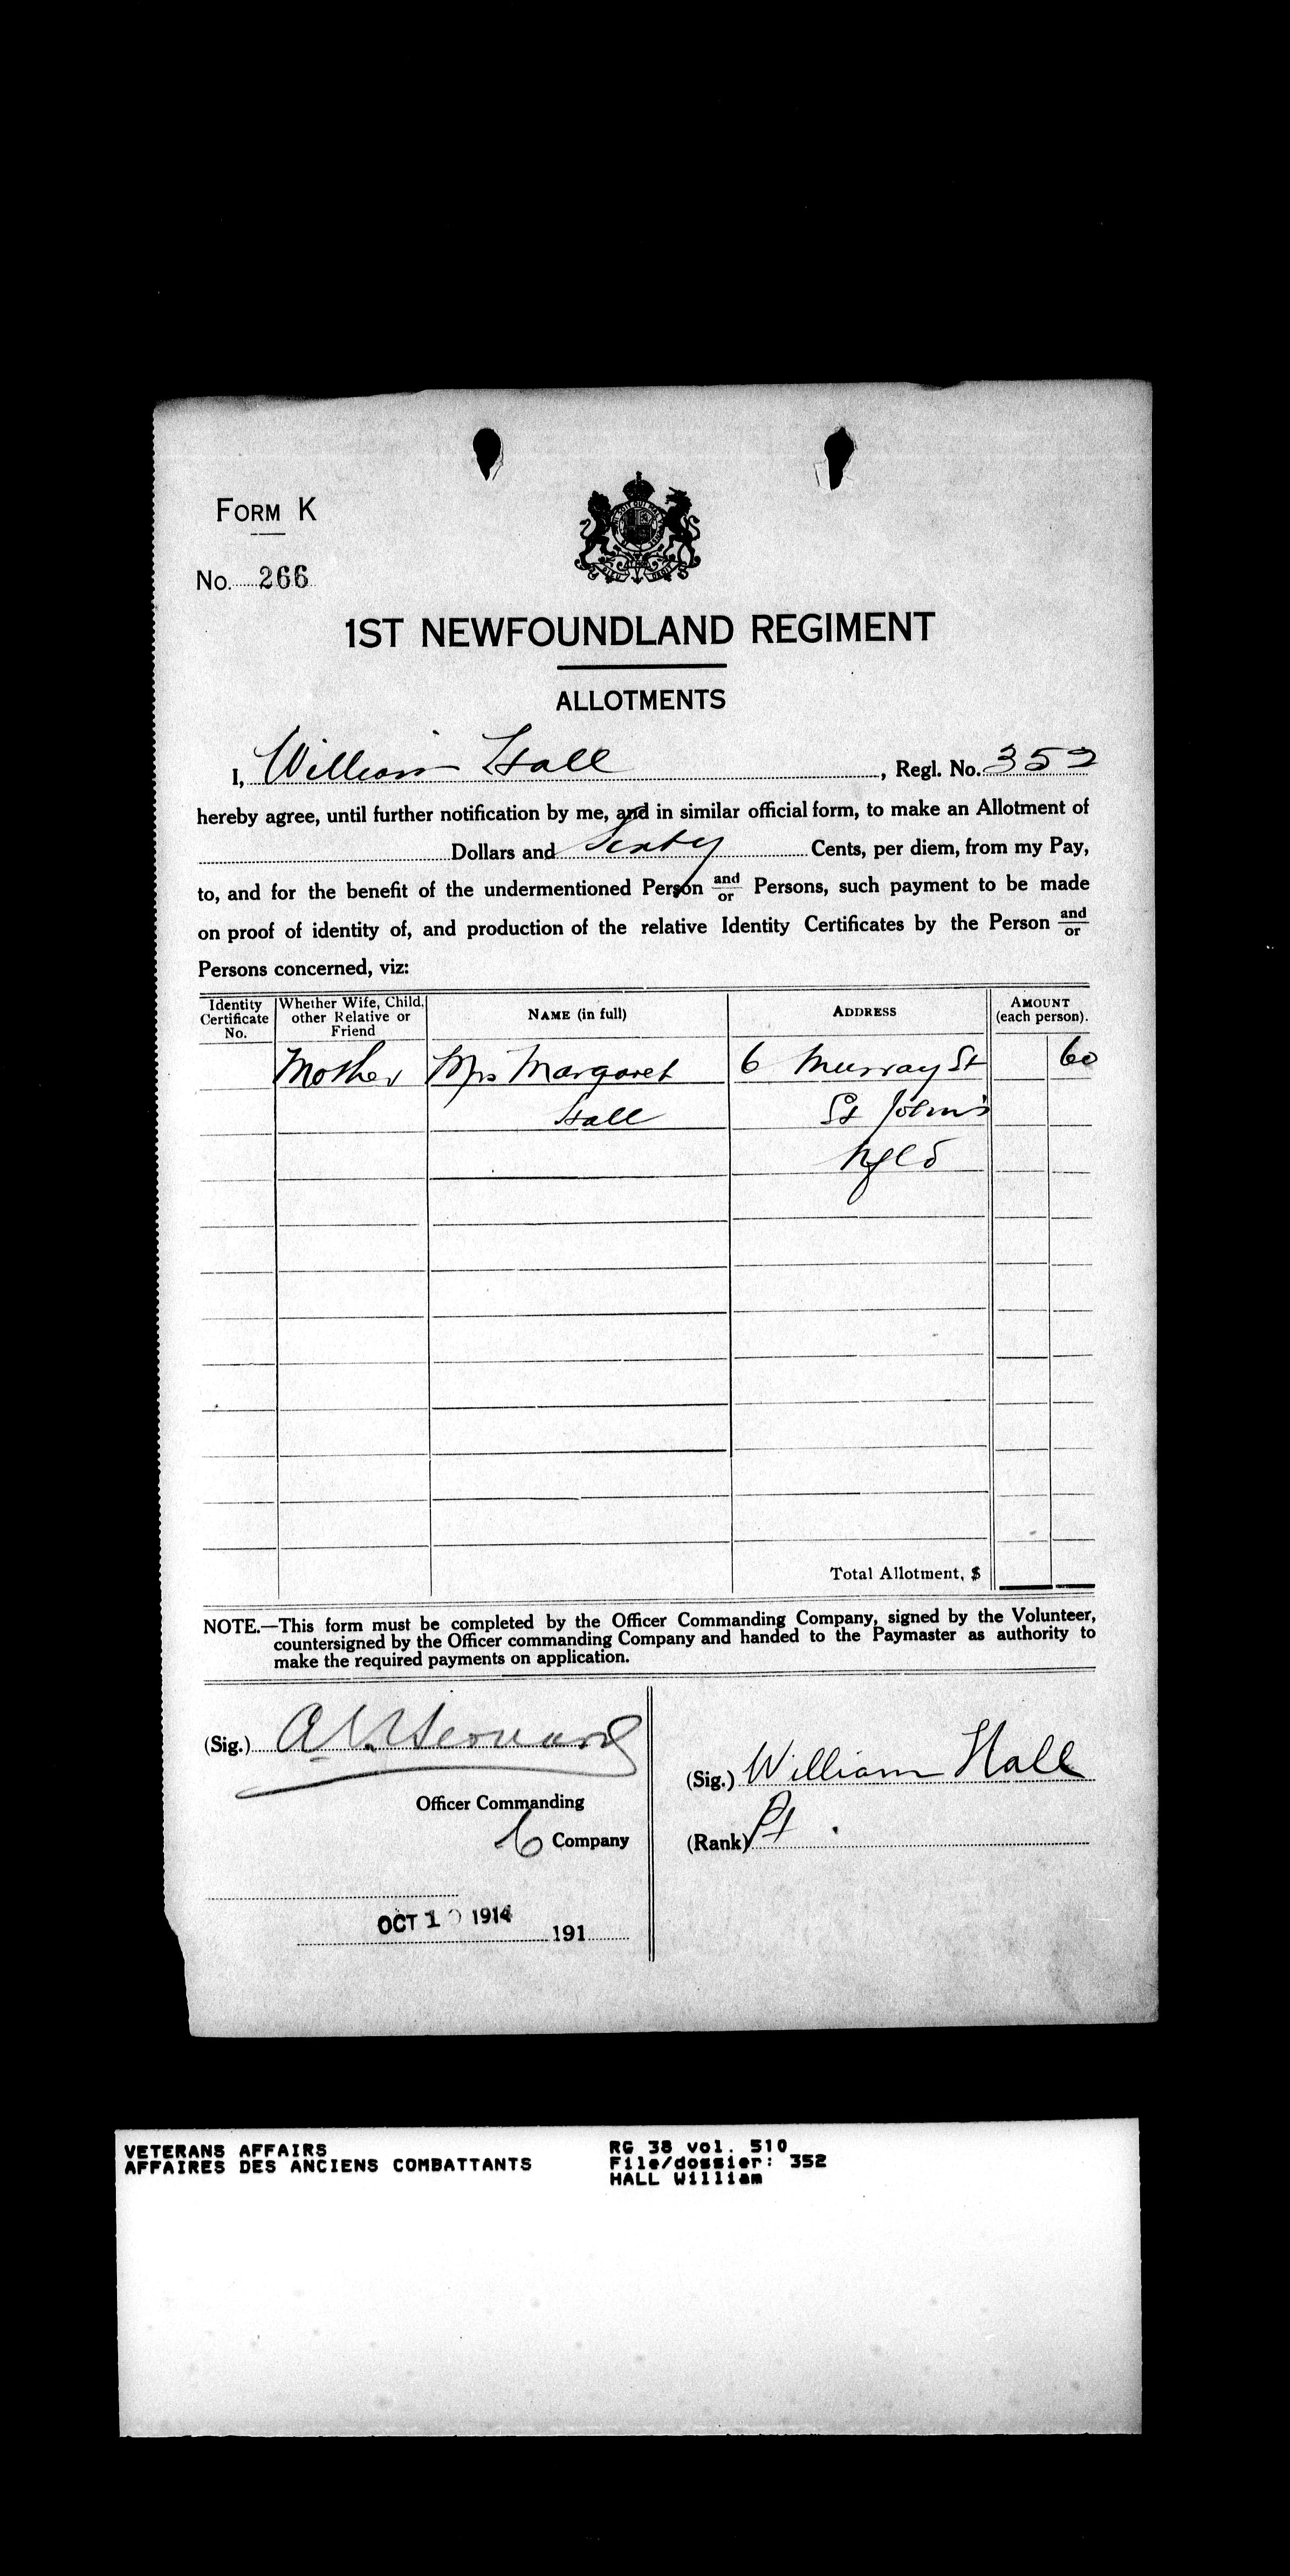 FORM K
No. 266
1ST NEWFOUNDLAND REGIMENT
ALLOTMENTS
I, William Hall, Regl. No. 352
hereby agree, until further notification by me, and in similar official form, to make an Allotment of
Dollars and Sixty Cents, per diem, from my Pay,
to, and for the benefit of the undermentioned Person and/or Persons, such payment to be made
on proof of identity of, and production of the relative Identity Certificates by the Person and/or
Persons concerned, viz:
Identity Certificate No. Whether Wife, Child, other Relative or Friend NAME (in full) ADDRESS AMOUNT (each person).
Mother Mrs Margaret 6 Murray St 60
Hall St John's
Nfld
Total Allotment, $
NOTE.—This form must be completed by the Officer Commanding Company, signed by the Volunteer,
countersigned by the Officer commanding Company and handed to the Paymaster as authority to
make the required payments on application.
(Sig.)
Officer Commanding
Company
OCT 1 1914 191
(Sig.) William Hall
(Rank) Pt.
VETERANS AFFAIRS RG 38 vol. 510
AFFAIRES DES ANCIENS COMBATTANTS File/dossier: 352
HALL William